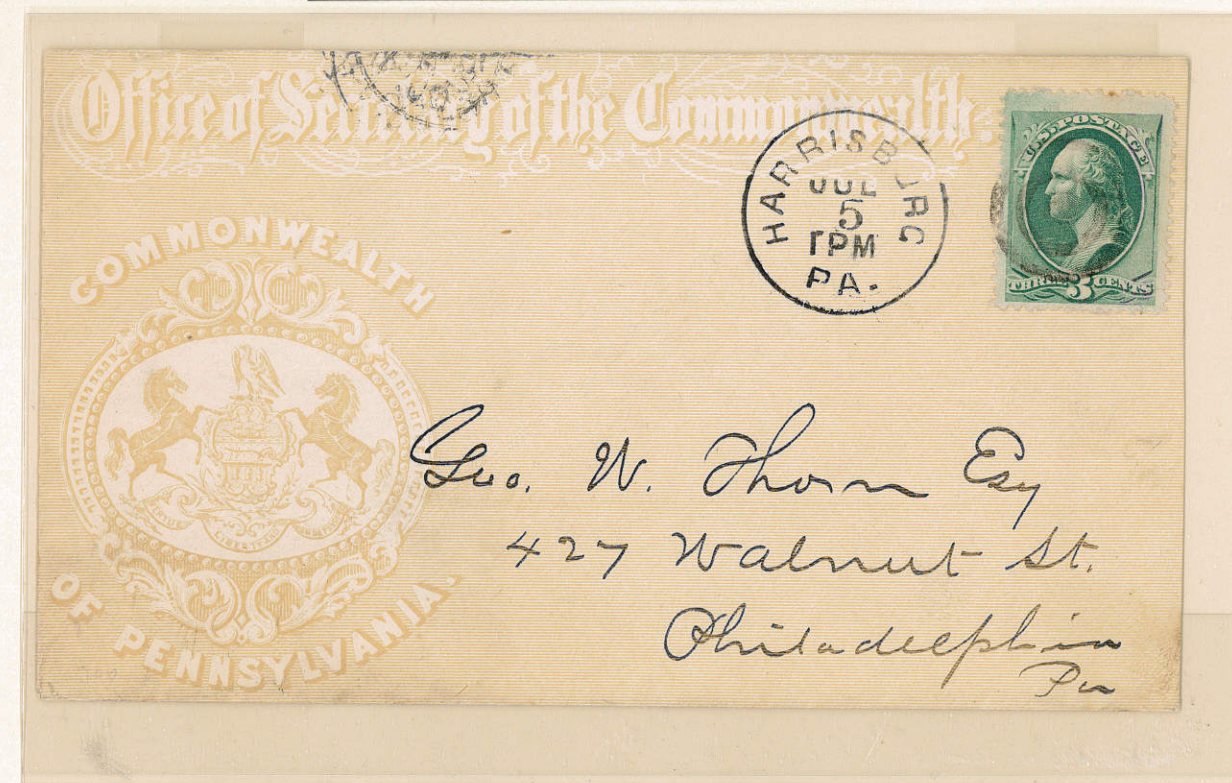 Office of Secretary of the Commonwealth.
HARRISBURG
JUL
5
1PM
PA.
U.S. POSTAGE
THREE 3 CENTS
COMMONWEALTH
OF PENNSYLVANIA.
Geo. W. Thorn Esq
427 Walnut St.
Philadelphia
Pa